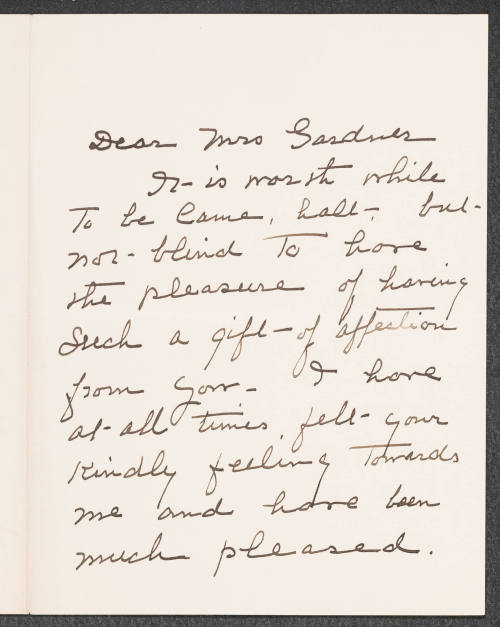 Dear Mrs Gardner
It is worth while
to be lame, halt, but
not blind to have
the pleasure of having
such a gift of affection
from you. I have
at all times felt your
kindly feeling towards
me and have been
much pleased.